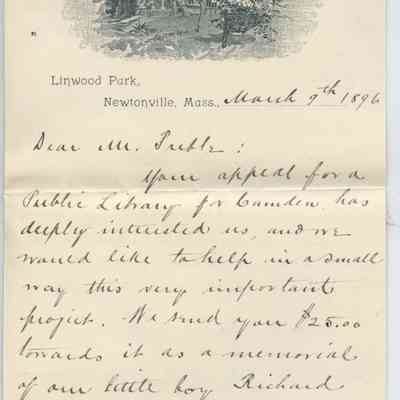 Linwood Park,
Newtonville, Mass., March 9th 1896
Dear Mr. Preble:
Your appeal for a
Public Library for Camden, has
deeply interested us, and we
would like to help in a small
way this very important
project. We send you $25.00
towards it as a memorial
of our little boy Richard